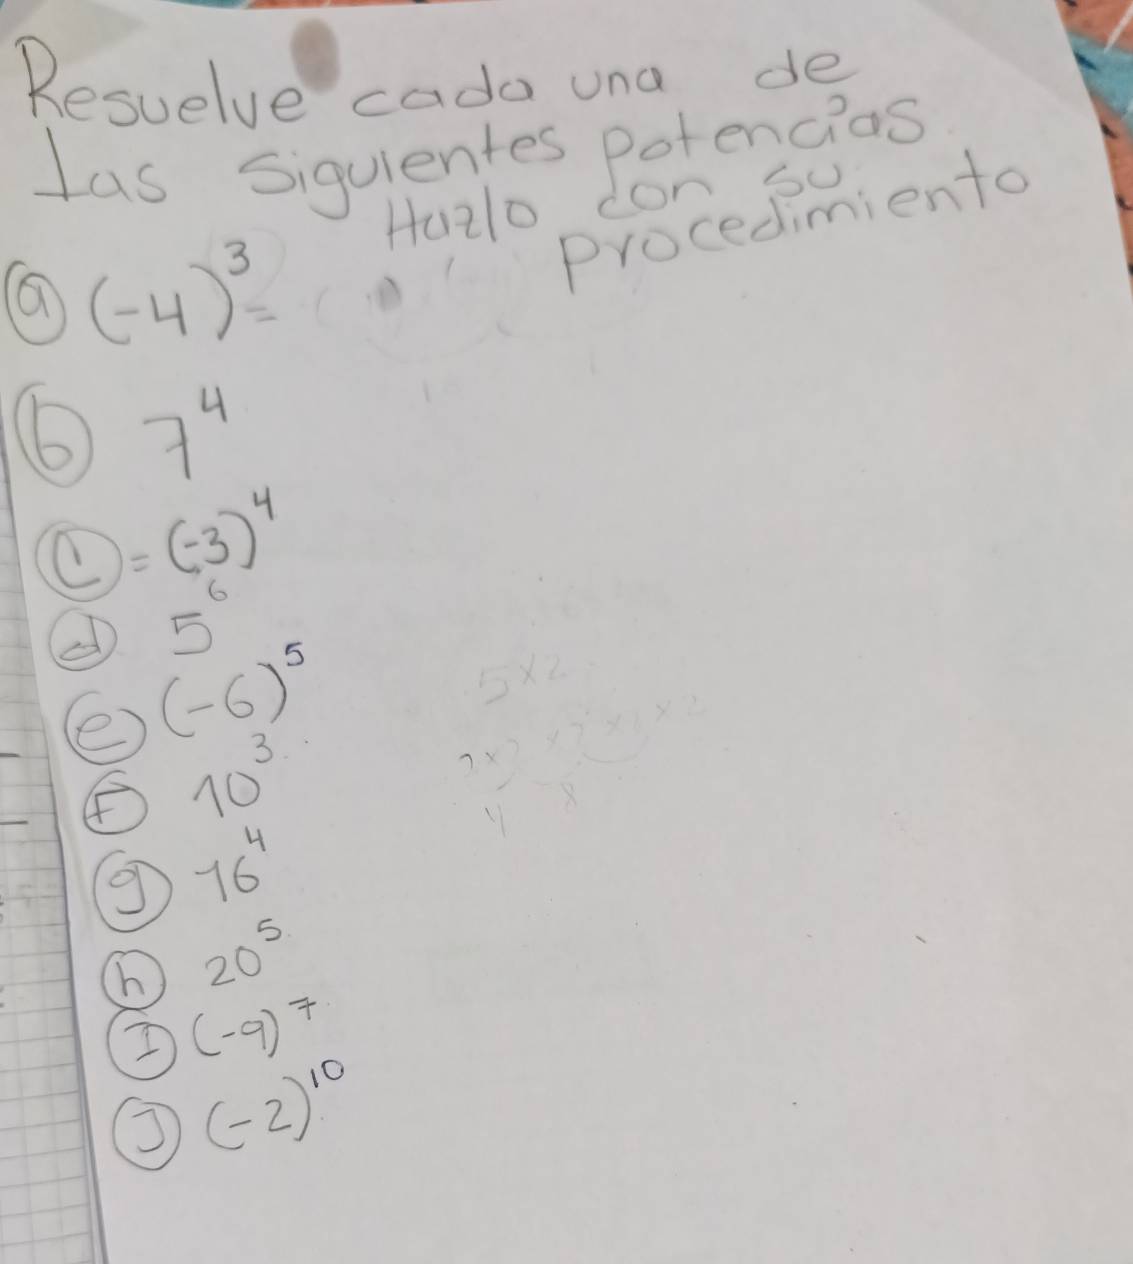 Resuelve cada una de
las siguientes potencias
Hazlo con su
procedimiento
a (-4)³=
b 7⁴
c = (-3)⁴
d 5⁶
e (-6)⁵
f 10³
g 16⁴
h 20⁵
I (-9)⁷
J (-2)¹⁰
5x2
4 8